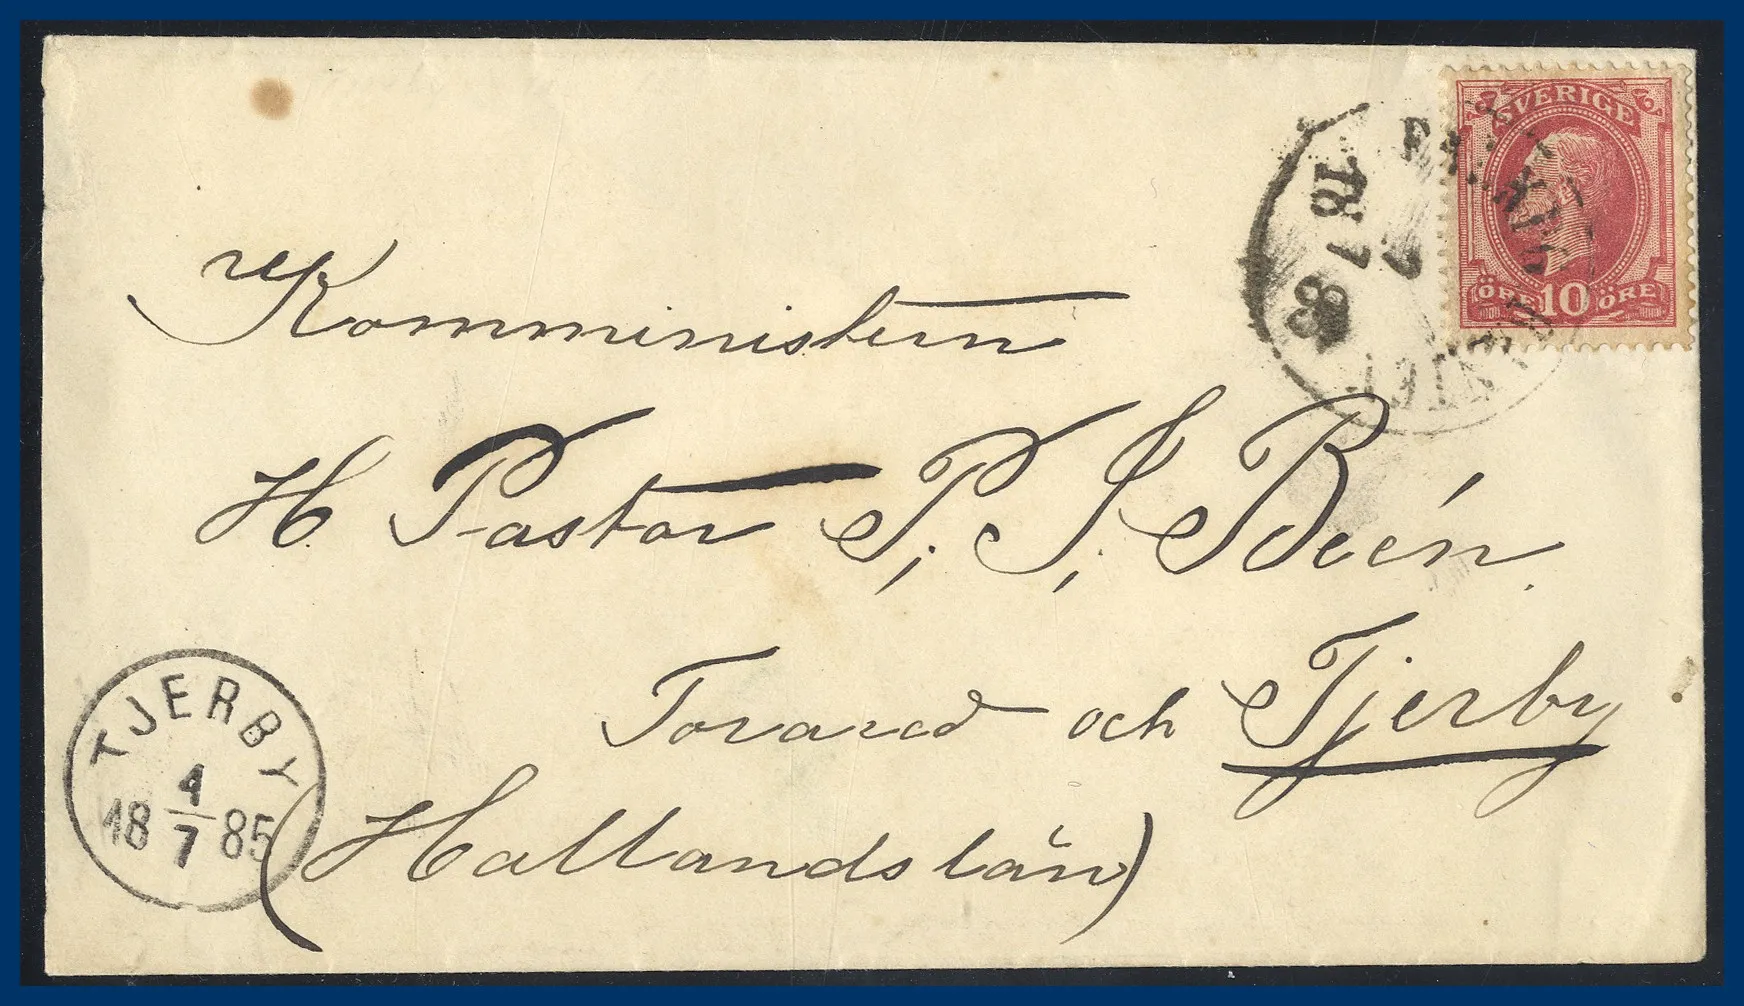 SVERIGE
ÖRE 10 ÖRE
18 7
Komministern
H. Pastor P. J. Beén
Tovared och Tjerby
(Hallandslän)
TJERBY
18 4/7 85